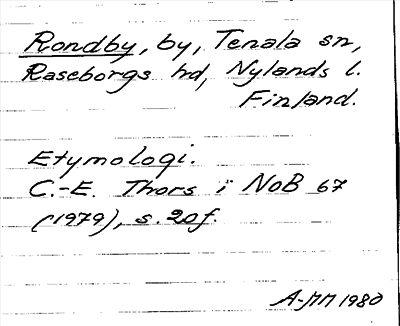 Rondby, by, Tenala sn,
Raseborgs hd, Nylands l.
Finland.
Etymologi.
C.-E. Thors i NoB 67
(1979), s. 20f.
A-MM 1980